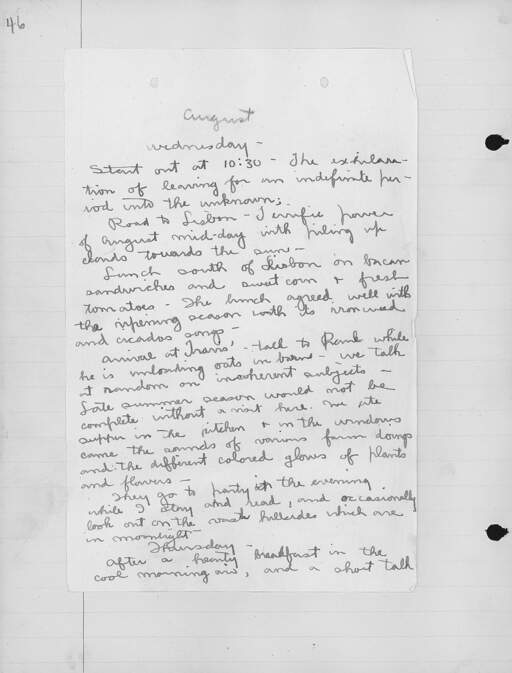 46
August
Wednesday -
Start out at 10:30 - The exhilara-
tion of leaving for an indefinite per-
iod into the unknown;
Road to Lisbon - Terrific power
of August mid-day with piling up
clouds towards the sun -
Lunch south of Lisbon on bacon
sandwiches and sweet corn & fresh
tomatoes - The lunch agreed well with
the ripening season with its ironweed
and cicadas songs;
arrival at - talk to while
he is unloading oats in barn - we talk
at random on incoherent subjects -
Late summer season would not be
complete without a visit here. We ate
supper in the kitchen & in the windows
came the sounds of various farm doings
and the different colored glows of plants
and flowers -
They go to party in the evening
while I stay and read, and occasionally
look out on the hillsides which are
in moonlight -
Thursday -
after a hearty breakfast in the
cool morning air, and a short talk